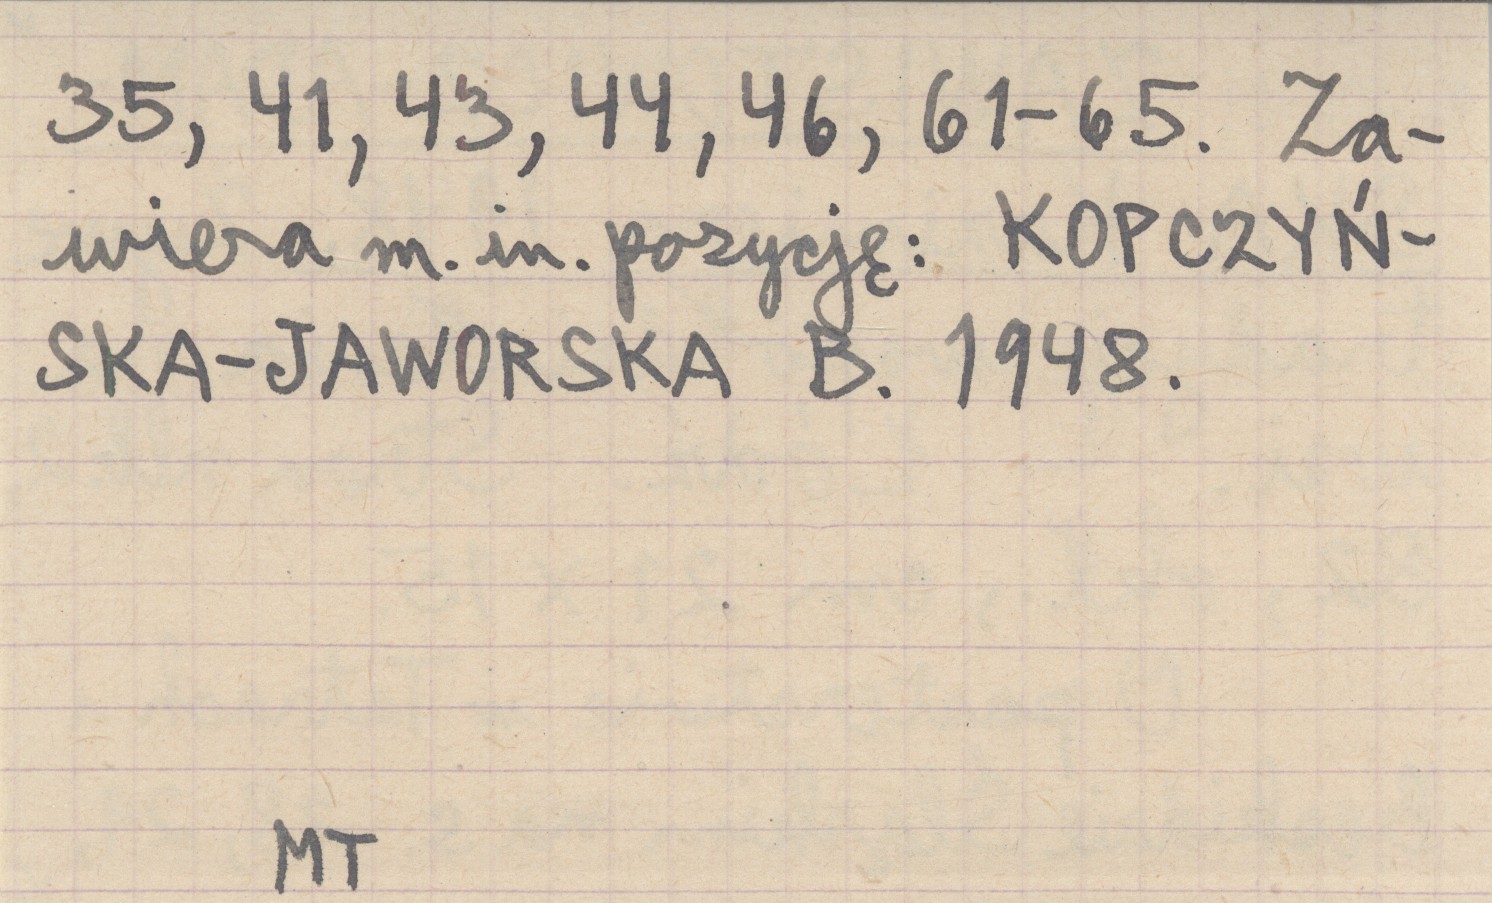 35, 41, 43, 44, 46, 61-65. Za-
wiera m. in. pozycję: KOPCZYŃ-
SKA-JAWORSKA B. 1948.
MT